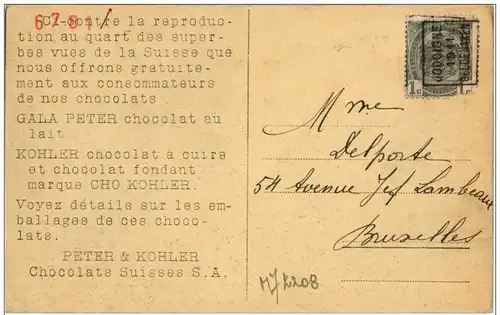 6781/
Ci-contre la reproduc-
tion au quart des super-
bes vues de la Suisse que
nous offrons gratuite-
ment aux consommateurs
de nos chocolats
GALA PETER chocolat au
lait
KOHLER chocolat à cuire
et chocolat fondant
marque CHO KOHLER.
Voyez détails sur les em-
ballages de ces choco-
lats.
PETER & KOHLER
Chocolats Suisses S.A.
1c 1c
1911
Mme
Delporte
54 Avenue Jef Lambeaux
Bruxelles